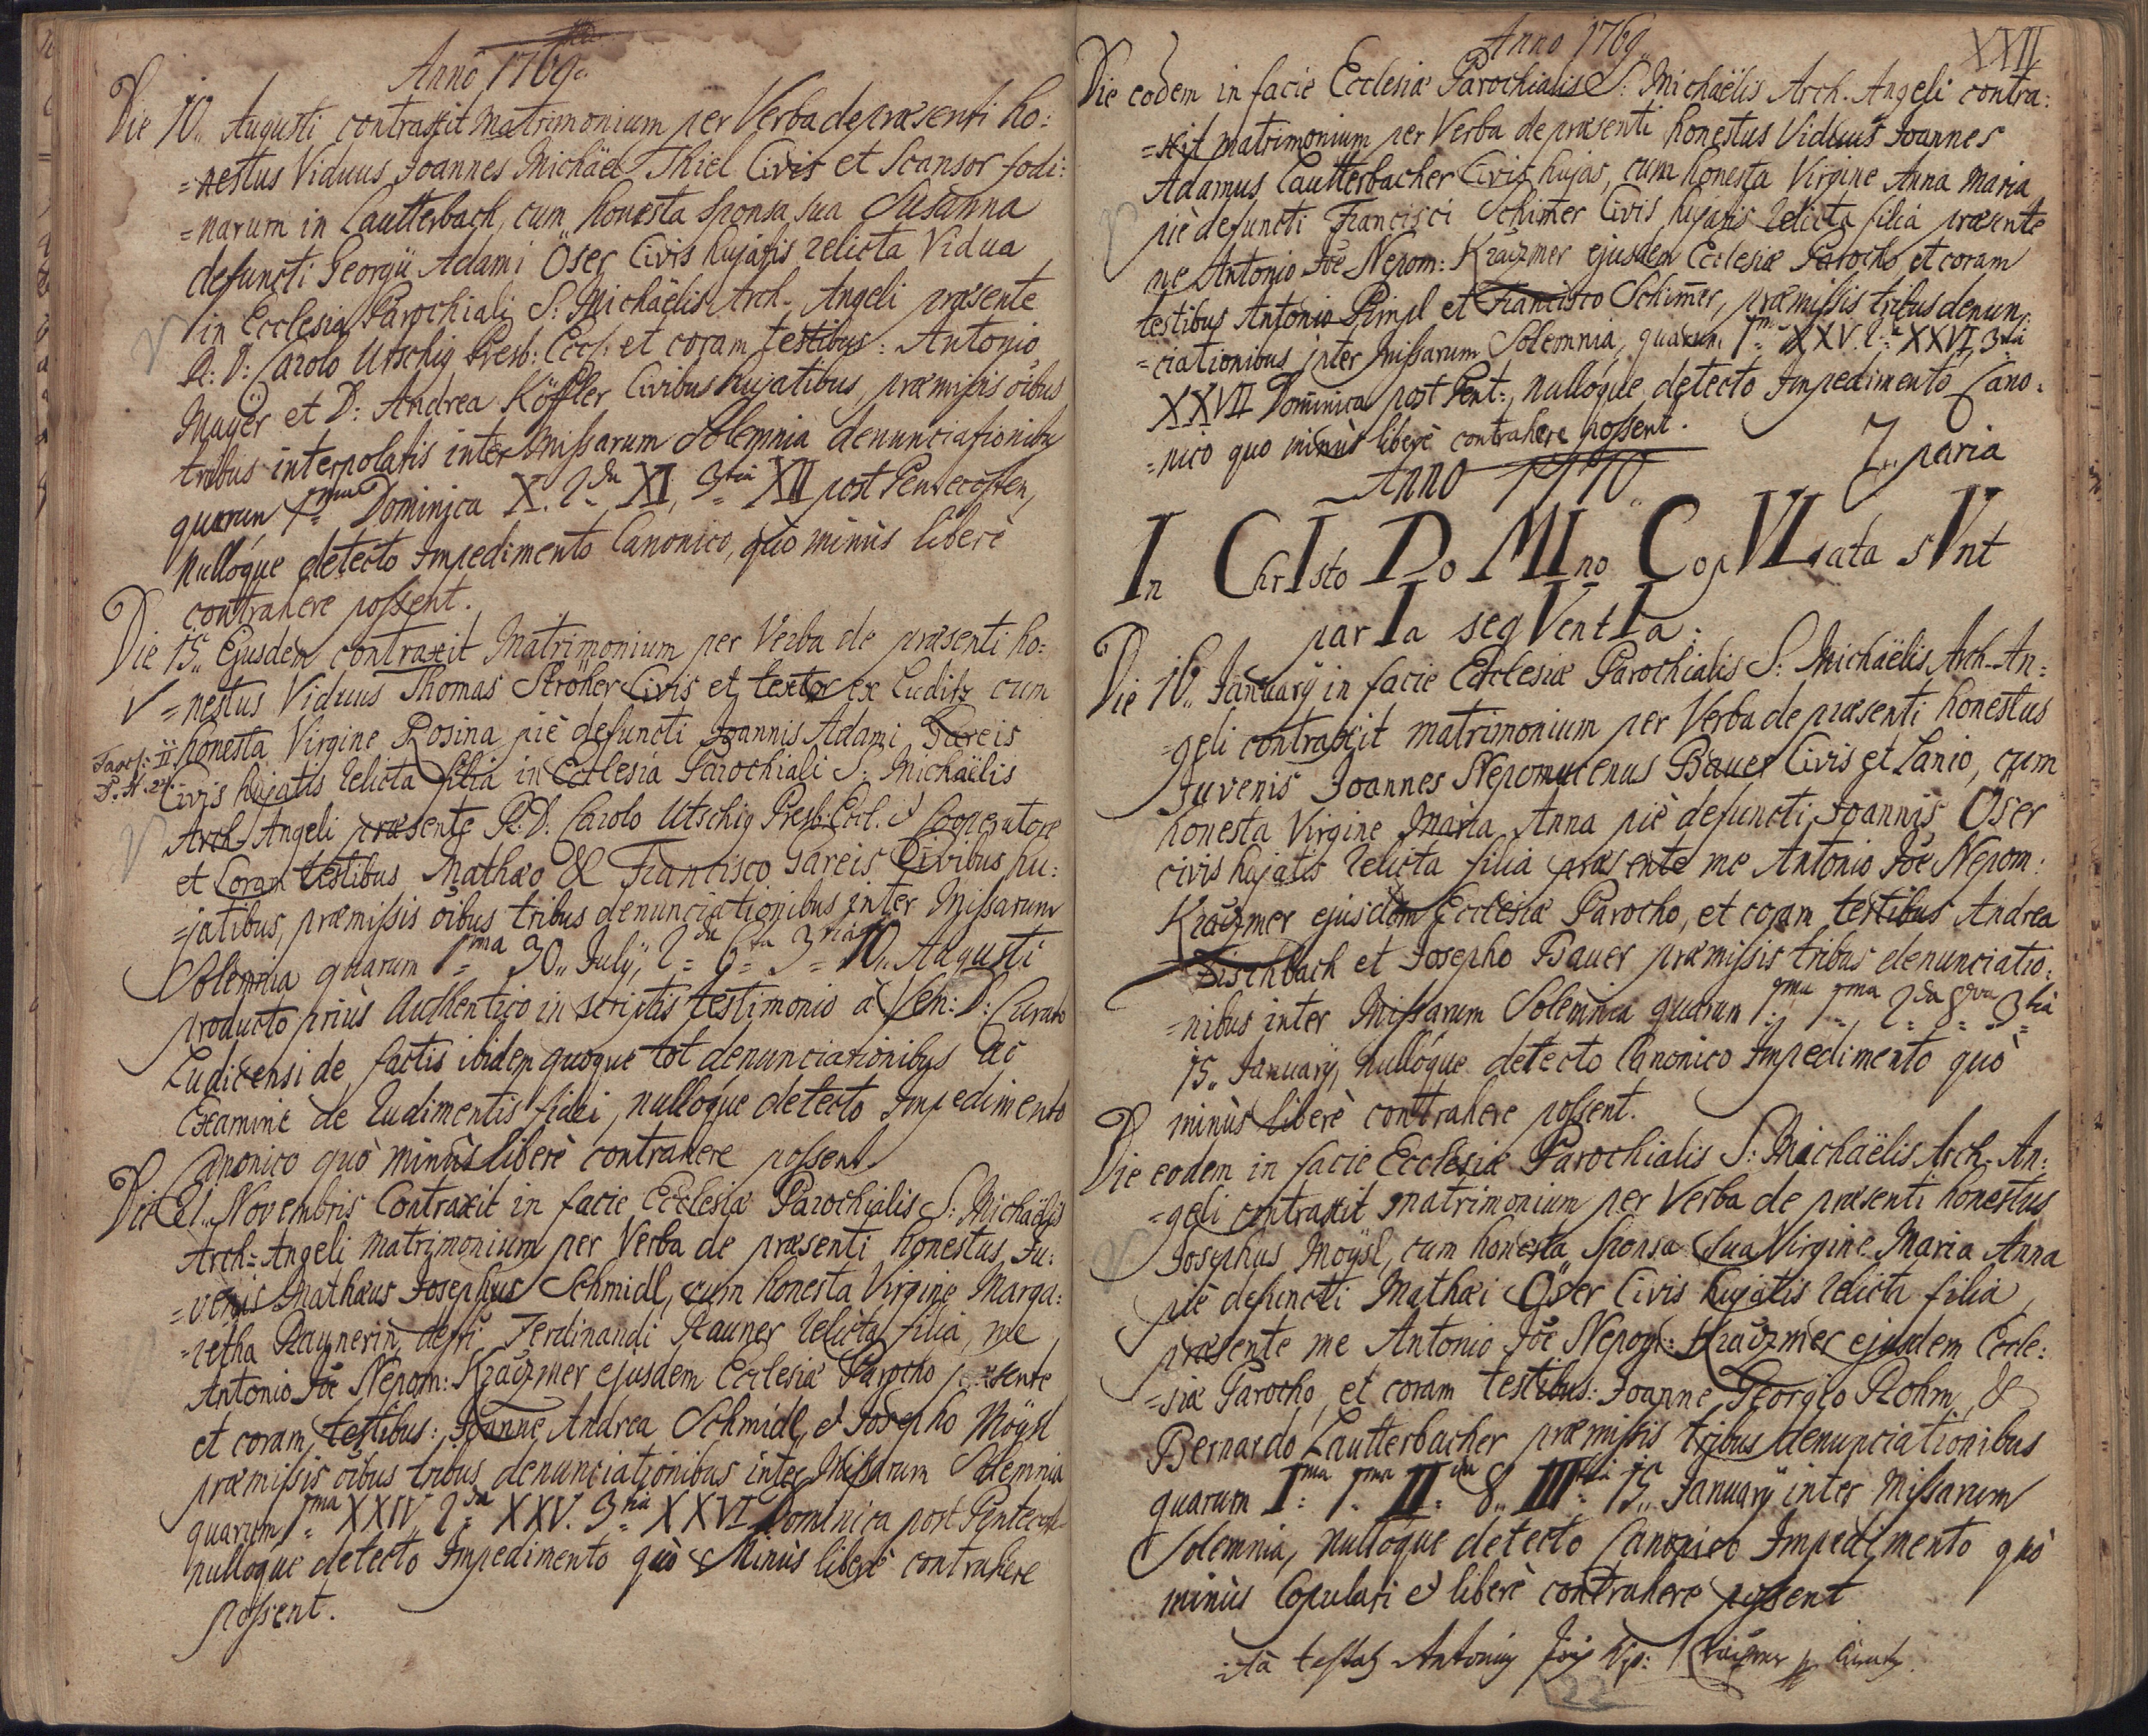 Anno 1769.
Die 10. Augusti contraxit matrimonium per Verba de præsenti ho:
=nestus Viduus Joannes Michäel Thiel Civis et Scansor fodi:
=narum in Lautterbach, cum honesta Sponsa sua Susanna
defuncti Georgii Adami Öser Civis hujatis relicta Vidua
in Ecclesia Parochiali S: Michaëlis Arch. Angeli præsente
R: D: Carolo Utschig Presb: Eccl. et coram testibus: Antonio
Mayër et D: Andrea Köffler Civibus hujatibus, præmissis oibus
tribus interpolatis inter Missarum Solemnia denunciationibu
quarum 1ma Dominica X. 2da XI, 3tia XII post Pentecosten,
nullóque detecto Impedimento Canonico, quò minùs liberè
contrahere possent.
Die 15. Ejusdem contraxit Matrimonium per Verba de præsenti ho:
=nestus Viduus Thomas Ströher Civis et textor ex Luditz cum
honesta Virgine Rosina piè defuncti Joannis Adami Gareis
Fasc: II.
P. N. 24.
Civis hujatis relicta filia in Ecclesia Parochiali S: Michaëlis
Arch-Angeli præsente R: D. Carolo Utschig Presb: Eccl. & Cooperatore
et Coram testibus Mathæo & Francisco Gareis Civibus hu:
=jatibus, præmissis oibus tribus denunciationibus inter Missarum
Solemnia quarum 1ma 30. Julÿ, 2da 6ta 3tia 10. Augusti
producto priùs Authentico in scriptis testimonio à Ven: D: Curato
Ludicensi de factis ibidem quoque tot denunciationibus ac
Examine de rudimentis fidei, nullóque detecto Impedimento
Canonico quò minùs liberè contrahere possent.
Die 21. Novembris Contraxit in facie Ecclesiæ Parochialis S: Michaëlis
Arch=Angeli matrimonium per Verba de præsenti honestus Ju:
=venis Mathæus Josephus Schmidl, cum honesta Virgine Marga:
=retha Raunerin defti Ferdinandi Rauner relicta filia, me
Antonio Joe Nepom: Kraizmer ejusdem Ecclesiæ Parocho præsente
et coram testibus: Joanne Andrea Schmidl, & Josepho Moÿsl
præmissis oibus tribus denunciationibus inter Missarum Solemnia
quarum 1ma XXIV 2da XXV. 3tia XXVI Dominica post Pentecost
nullóque detecto Impedimento quò Minùs liberè contrahere
possent.
Anno 1769.
XXII
Die eodem in facie Ecclesiæ Parochialis S: Michaëlis Arch-Angeli contra:
=xit matrimonium per Verba de præsenti honestus Viduus Joannes
Adamus Lautterbacher Civis hujas, cum honesta Virgine Anna Maria
piè defuncti Francisci Schimer Civis hujatis relicta filia præsente
me Antonio Joe Nepom: Kraizmer ejusdem Ecclesiæ Parocho et coram
testibus Antonio Pimpl et Francisco Schimer, præmissis tribus denun:
=ciationibus inter Missarum Solemnia, quarum 1ma XXV. 2da XXVI, 3tia
XXVII Dominica post Pent:, nullóque detecto Impedimento Cano:
=nico quo minùs liberè contrahere possent.
7. paria
Anno 1770
In ChrIsto DoMIno CopVLata sVnt
parIa seqVentIa:
Die 16. Januarÿ in facie Ecclesiæ Parochialis S: Michaëlis Arch-An:
=geli contraxit matrimonium per Verba de præsenti honestus
Juvenis Joannes Nepomucenus Bauer Civis et Lanio, cum
honesta Virgine Maria Anna piè defuncti Joannis Öser
civis hujatis relicta filia præsente me Antonio Joe Nepom:
Kraizmer ejusdem Ecclesiæ Parocho, et coram testibus Andrea
Fischbach et Josepho Bauer præmissis tribus denunciatio:
=nibus inter Missarum Solemnia quarum 1ma 1ma, 2da 8va 3tia
15. Januarÿ, nullóque detecto Canonico Impedimento quò
minùs liberè contrahere possent.
Die eodem in facie Ecclesiæ Parochialis S: Michaëlis Arch-An:
=geli contraxit matrimonium per Verba de præsenti honestus
Josephus Moÿsl, cum honesta Sponsa sua Virgine Maria Anna
piè defuncti Mathæi Öser Civis hujatis relicta filia,
præsente me Antonio Joe Nepom: Kraizmer ejusdem Eccle:
=siæ Parocho, et coram testibus: Joanne Georgio Rohm, &
Bernardo Lautterbacher præmissis tribus denunciationibus
quarum Ima 1ma IIda 8. IIItia 15. Januarÿ inter Missarum
Solemnia, nullóque detecto Canonico Impedimento quò
minùs Copulari & liberè contrahere possent
ità testatz Antonius Jois Nep: Kraizmer
22